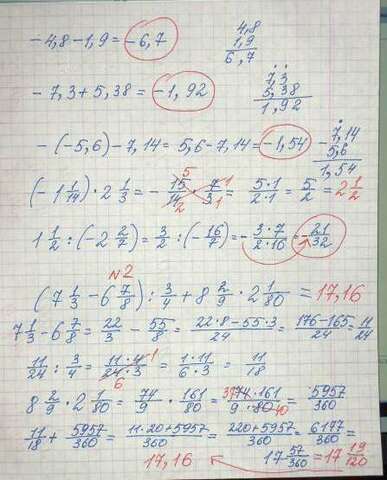 -4,8-1,9=-6,7
4,8
1,9
6,7
-7,3+5,38=-1,92
7,3
5,38
1,92
-(-5,6)-7,14=5,6-7,14=-1,54
-7,14
5,6
1,54
(-1 1/14)·2 1/3=-15/14·7/3=5·1/2·1=5/2=2 1/2
5 1 2 1
1 1/2:(-2 2/7)=3/2:(-16/7)=-3·7/2·16=-21/32
№2
(7 1/3-6 7/8):3/4+8 2/9·2 1/80=17,16
7 1/3-6 7/8=22/3-55/8=22·8-55·3/24=176-165/24=11/24
11/24:3/4=11·4/24·3=1·11/6·3=11/18
1 6
8 2/9·2 1/80=74/9·161/80=74·161/9·80=5957/360
37 40
11/18+5957/360=11·20+5957/360=220+5957/360=6177/360=
17,16
17 57/360=17 19/120